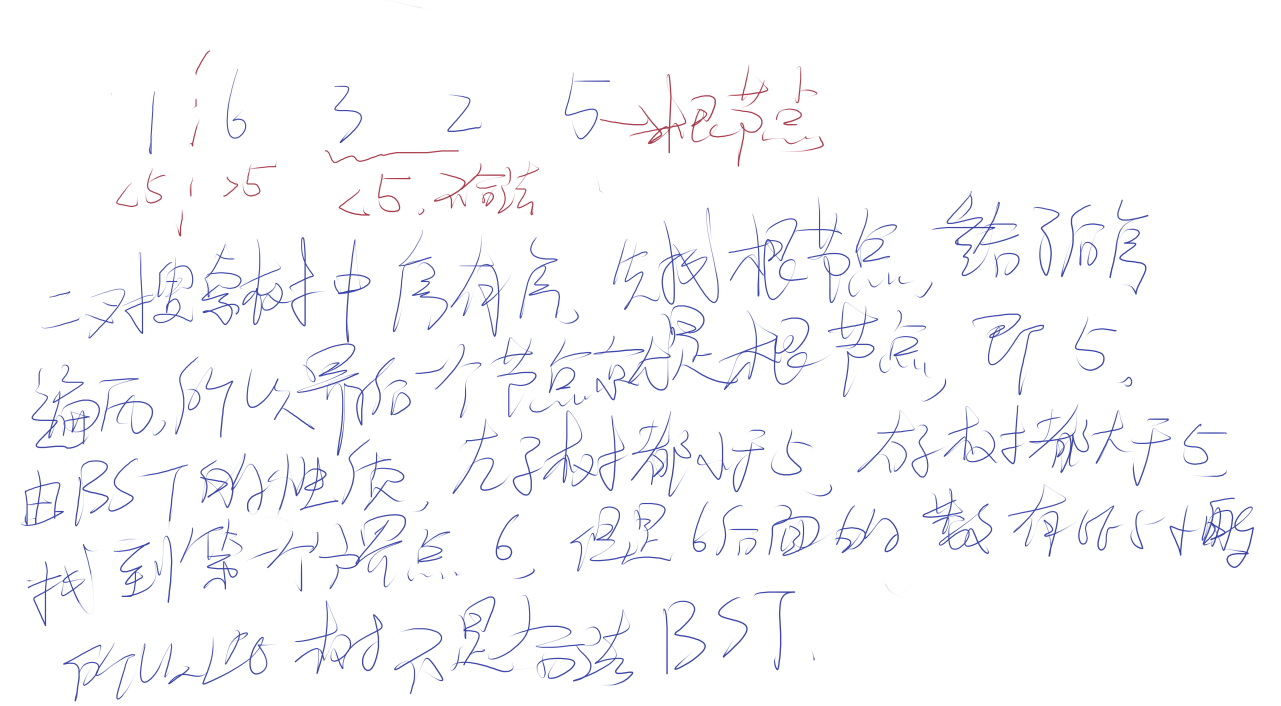 1 6 3 2 5 → 根节点
<5 >5 <5, 不合法
二叉搜索树中序有序, 先找根节点, 给了后序
遍历, 所以最后一个节点就是根节点, 即 5。
由BST的性质, 左子树都小于5, 右子树都大于5,
找到第一个分界点 6, 但是6后面的数有比5小的
所以此树不是合法BST.